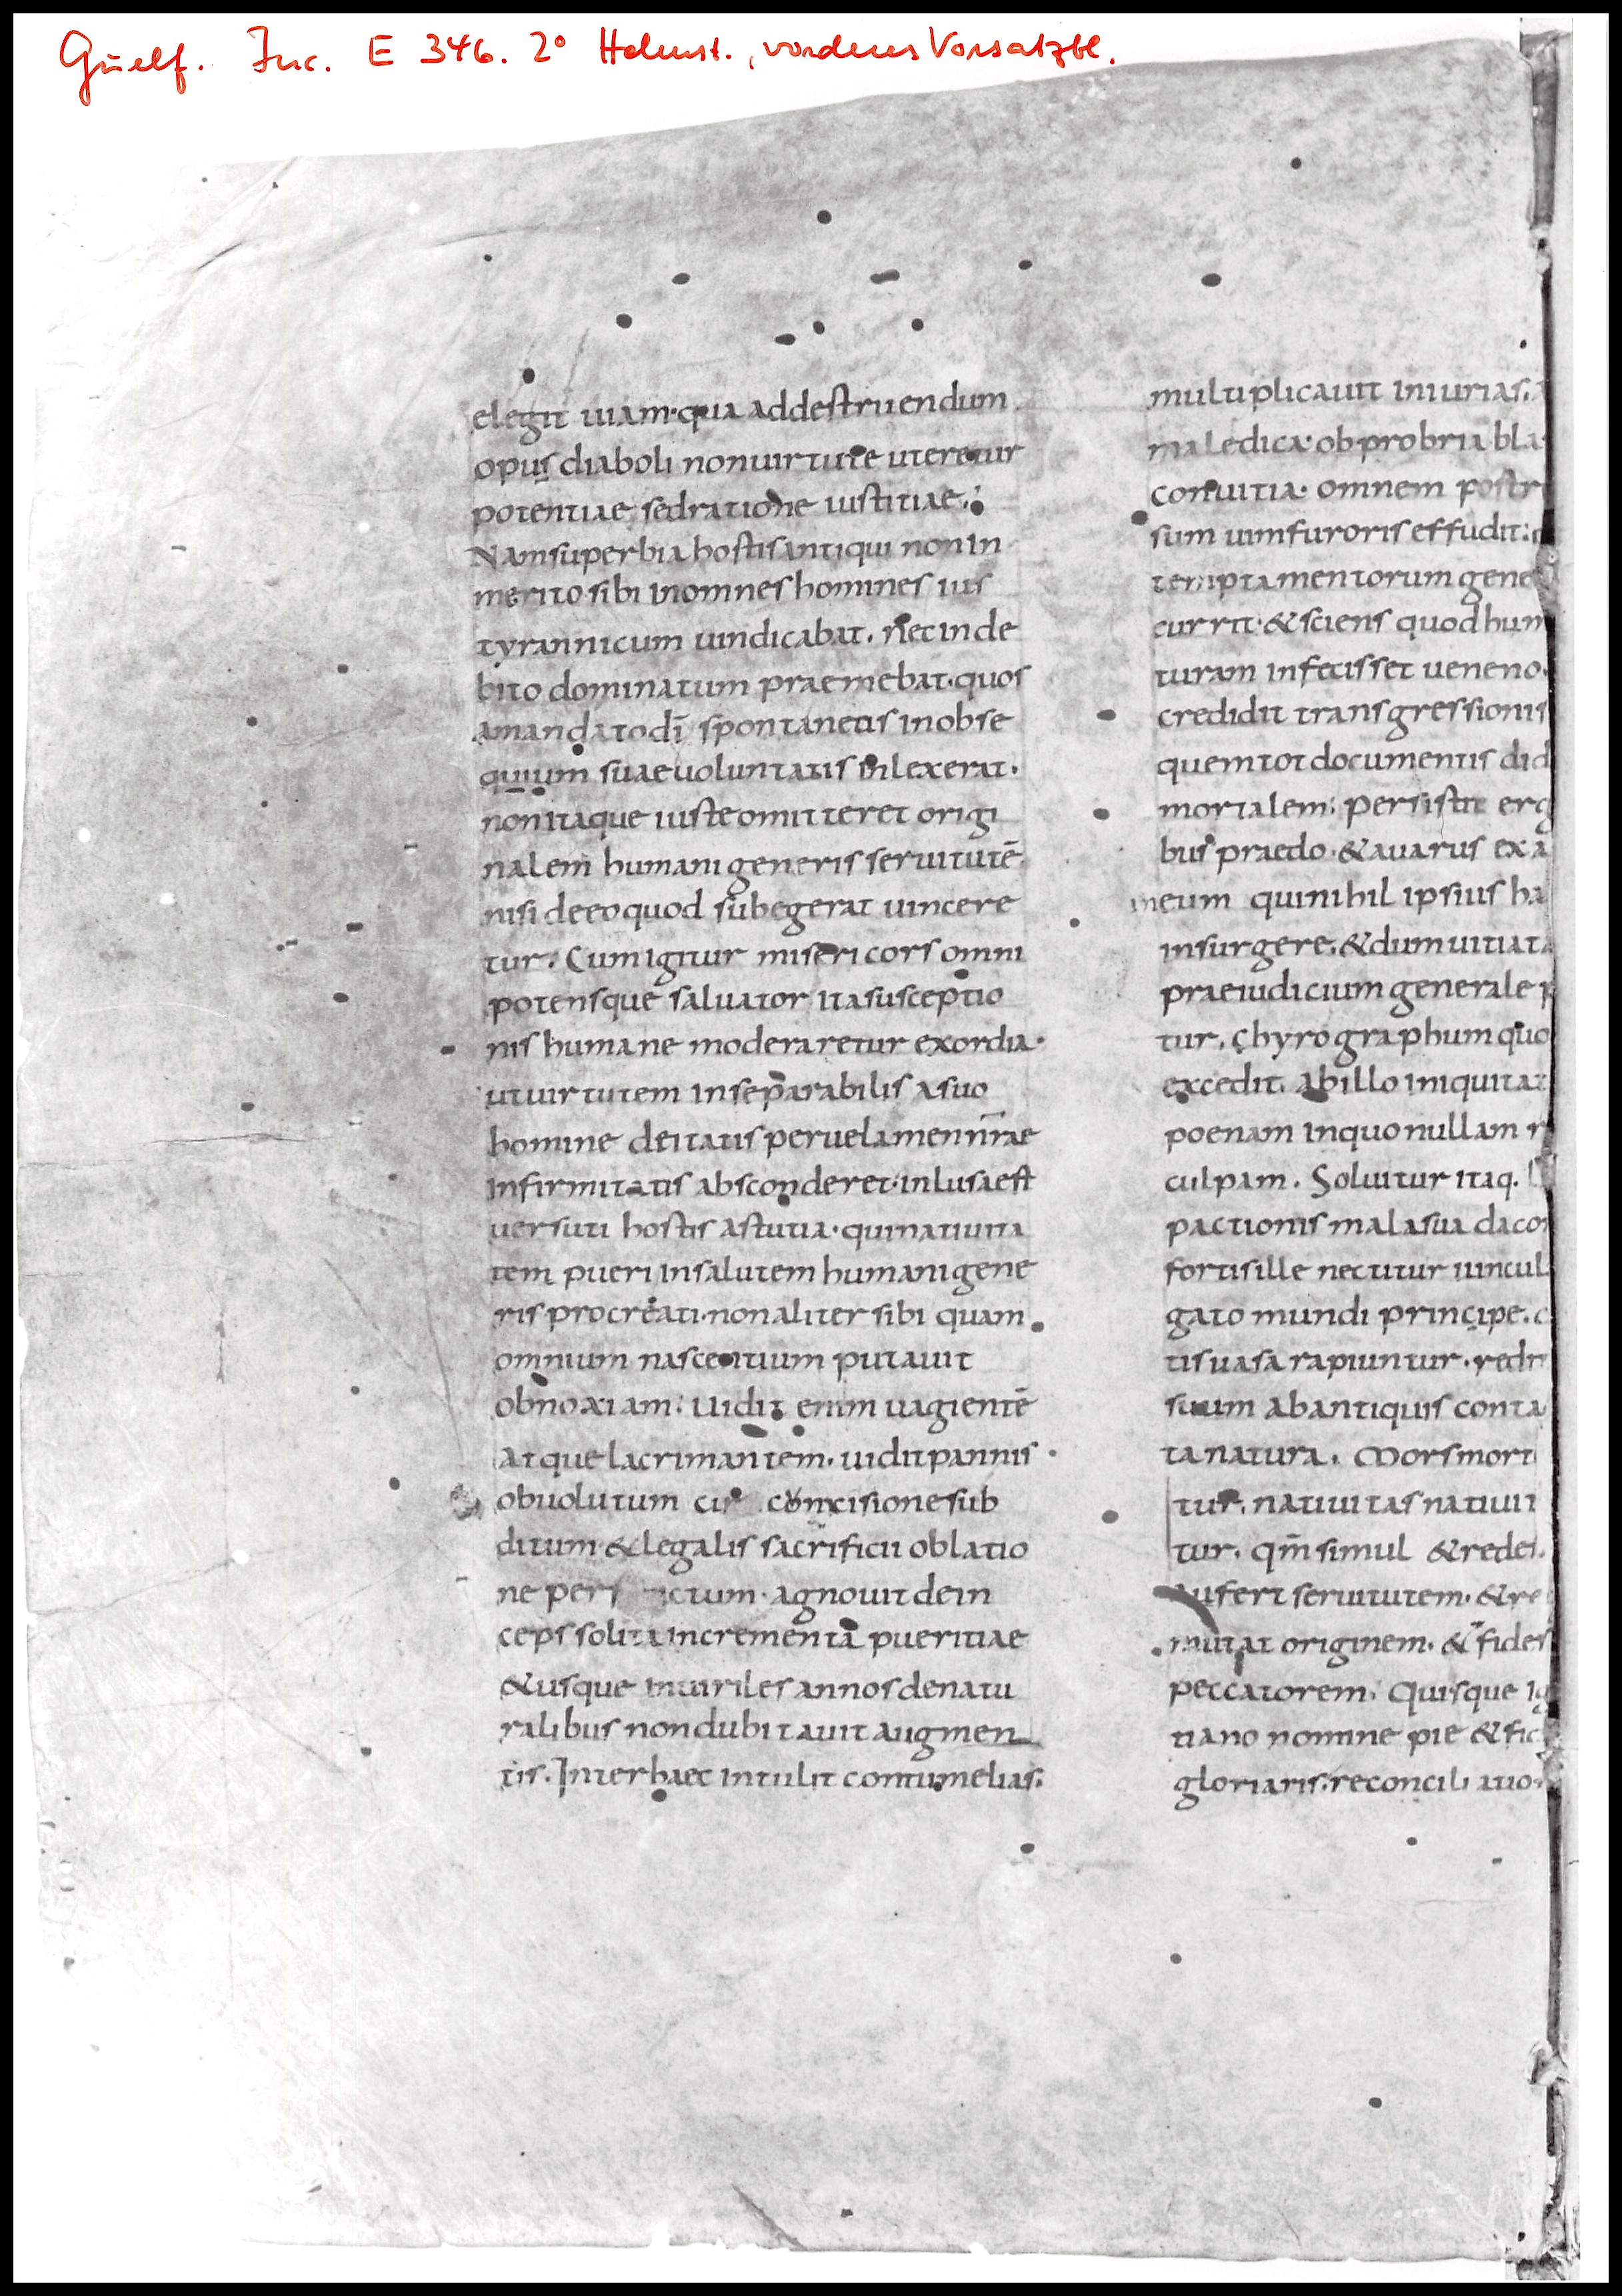 Guelf. Inc. E 346. 2° Helmst., vorderes Vorsatzbl.
elegit uiam· qua addestruendum
opus diaboli nonuirtute uteretur
potentiae sedratione iustitiae.
Namsuperbia hostisantiqui nonin
merito sibi inomnes homines ius
tyrannicum uindicabat. necinde
bito dominatum praemebat· quos
amandato dī spontaneis inobse
quium suaeuoluntatis inlexerat.
nonitaque iusteomitteret origi
nalem humani generis seruitutē
nisi deeoquod subegerat uincere
tur. Cumigitur misericors omni
potensque saluator itasusceptio
nis humane moderaretur exordia·
utuirtutem inseparabilis asuo
homine deitatis peruelamen nr̄ae
infirmitatis absconderet· inlusaest
uersuti hostis astutia· quinatiuita
tem pueri insalutem humanigene
ris procreati· nonaliter sibi quam
omnium nascentium putauit
obnoxiam. Uidit enim uagientē
atquelacrimantem. uiditpannis
obuolutum concisionesub
ditum &legalis sacrificii oblatio
ne agnouit dein
ceps solita incrementa pueritiae
&usque inuiriles annosdenatu
ralibus nondubitauit augmen
tis. Interhaec intulit contumelias.
multiplicauit iniurias.
maledica· obprobria bla
conuitia· omnem postr
sum uimfuroris effudit:
temptamentorum gene
currit· &sciens quodhum
turam infecisset ueneno.
credidit transgressionis
quemtot documentis did
mortalem. Persistit erg
bus praedo· &auarus exa
meum quinihil ipsius ha
insurgere. &dumuitiat
praeiudicium generale p
tur. Chyrographum quo
excedit. abillo iniquitat
poenam inquonullam r
culpam. Soluitur itaq.
pactionis malasua daco
fortisille nectitur uincul
gato mundi principe. c
tisuasa rapiuntur. redit
suum abantiquis conta
tanatura. Morsmort
tur. natiuitas natiuit
tur. qm̄ simul &rede
aufert seruitutem· &re
mutat originem. &fides
peccatorem. Quisque ig
tiano nomine pie &fid
gloriaris. reconciliatio